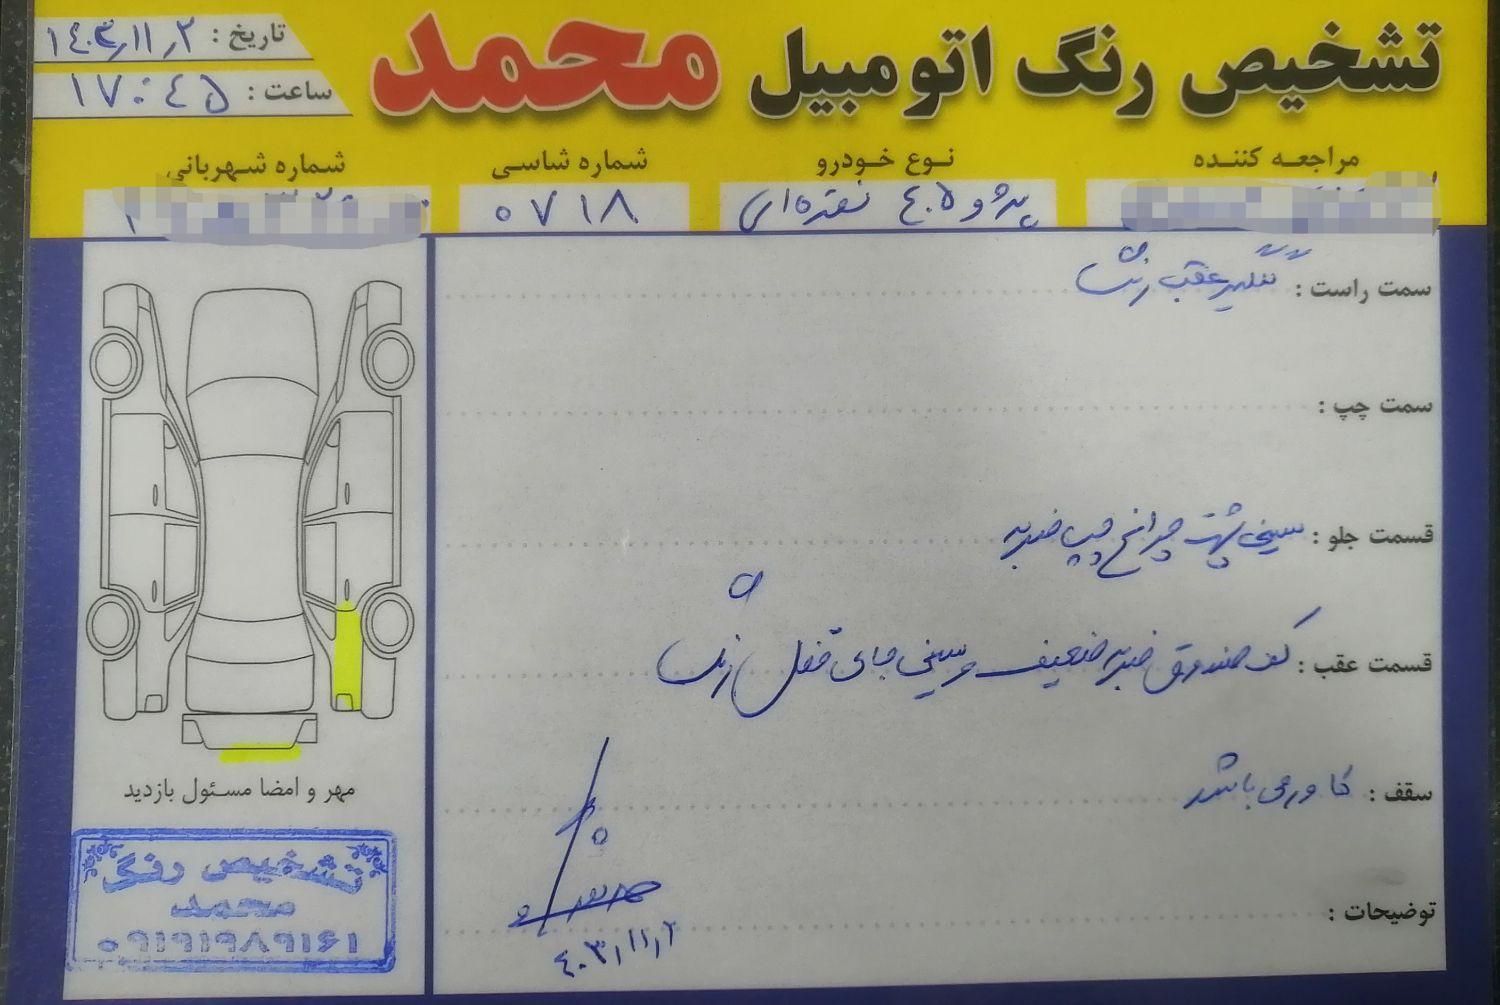 تشخیص رنگ اتومبیل محمد
تاریخ : ۱۴۰۳/۱۱/۲
ساعت : ۱۷:۴۵
مراجعه کننده
نوع خودرو
پژو ۴۰۵ نقره‌ای
شماره شاسی
۰۷۱۸
شماره شهربانی
سمت راست : گلگیر عقب رنگ
سمت چپ :
قسمت جلو : سینی پشت چراغ چپ ضربه
قسمت عقب : کف صندوق ضربه ضعیف و سینی جای قفل رنگ
سقف : کاور می باشد
توضیحات :
۴۰۳/۱۱/۲
مهر و امضا مسئول بازدید
تشخیص رنگ
محمد
۰۹۱۹۱۹۸۹۱۶۱